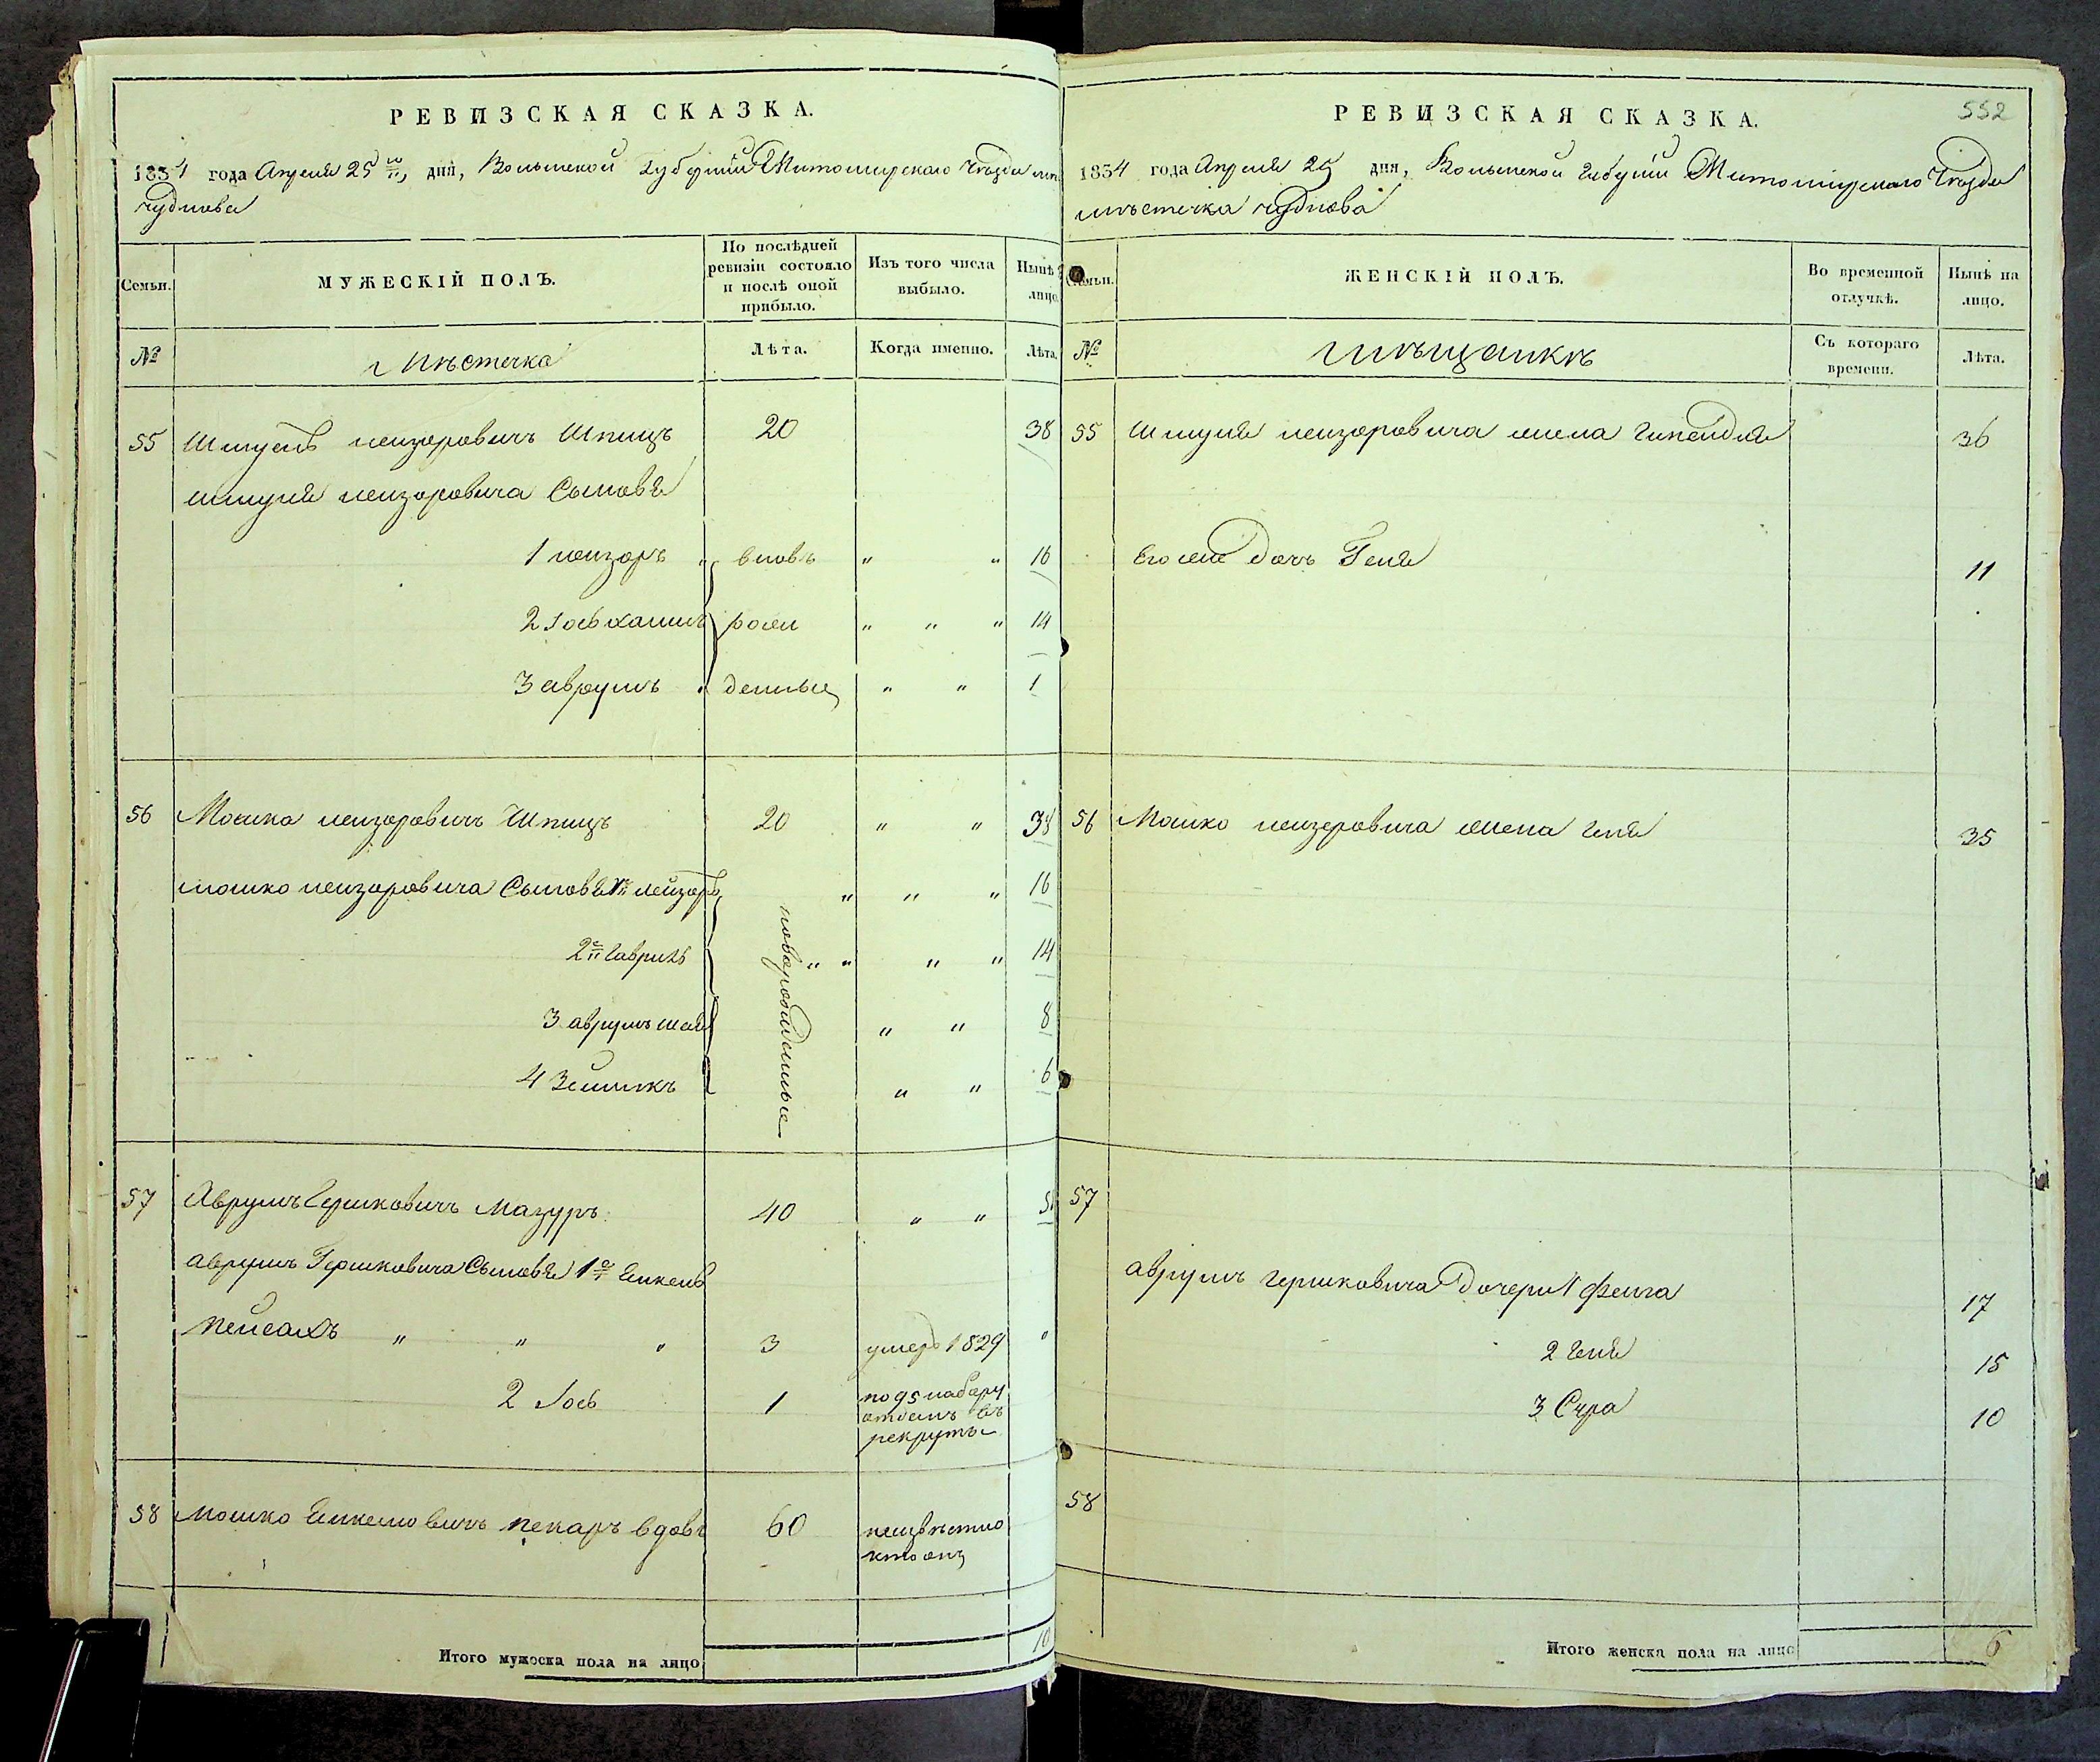 РЕВИЗСКАЯ СКАЗКА.
1834 года Апреля 25 дня, Волынской Губернии Житомирскаго Уѣзда
чуднова
Семьи.
МУЖЕСКІЙ ПОЛЪ.
По послѣдней ревизіи состояло и послѣ оной прибыло.
Изъ того числа выбыло.
Нынѣ на лицо.
№
Мѣстечка
Лѣта.
Когда именно.
Лѣта.
55 Шмуель лейзоровичъ Шпицъ 20 38
шмуля лейзоровича Сыновья
1 лейзоръ " вновь " " 16
2 Іось рожи " " " 14
3 аврумъ " денные " " 1
56 Мошко лейзоровичъ Шпицъ 20 " "
мошко лейзоровича Сыновья 1й лейзоръ " " " 16
2й Гаврилъ " " " " 14
3 аврумъ " " 8
4 " " 6
новорожденные
57 Аврумъ Гершковичъ Мазуръ 40 " "
аврумъ Гершковича Сыновья 1й Янкель
пейсахъ " " " 3 умеръ 1829 "
2 Іось 1 по 95 набору
отданъ въ
рекруты
58 мошко Янкелювичъ пекаръ 60 неизвѣстно
Итого мужеска пола на лицо 10
552
РЕВИЗСКАЯ СКАЗКА.
1834 года Апреля 25 дня, Волынской Губерніи Житомирскаго Уѣзда
мѣстечка чуднова
Семьи.
ЖЕНСКІЙ ПОЛЪ.
Во временной отлучкѣ.
Нынѣ на лицо.
№
мѣщанкъ
Съ котораго времени.
Лѣта.
55 Шмуля лейзоровича жена 36
Его же дочь Геня 11
56 Мошко лейзеровича жена Геня 35
57
аврумъ гершковича дочери 1 Фейга 17
2 Геня 15
3 Сура 10
58
Итого женска пола на лицо 6